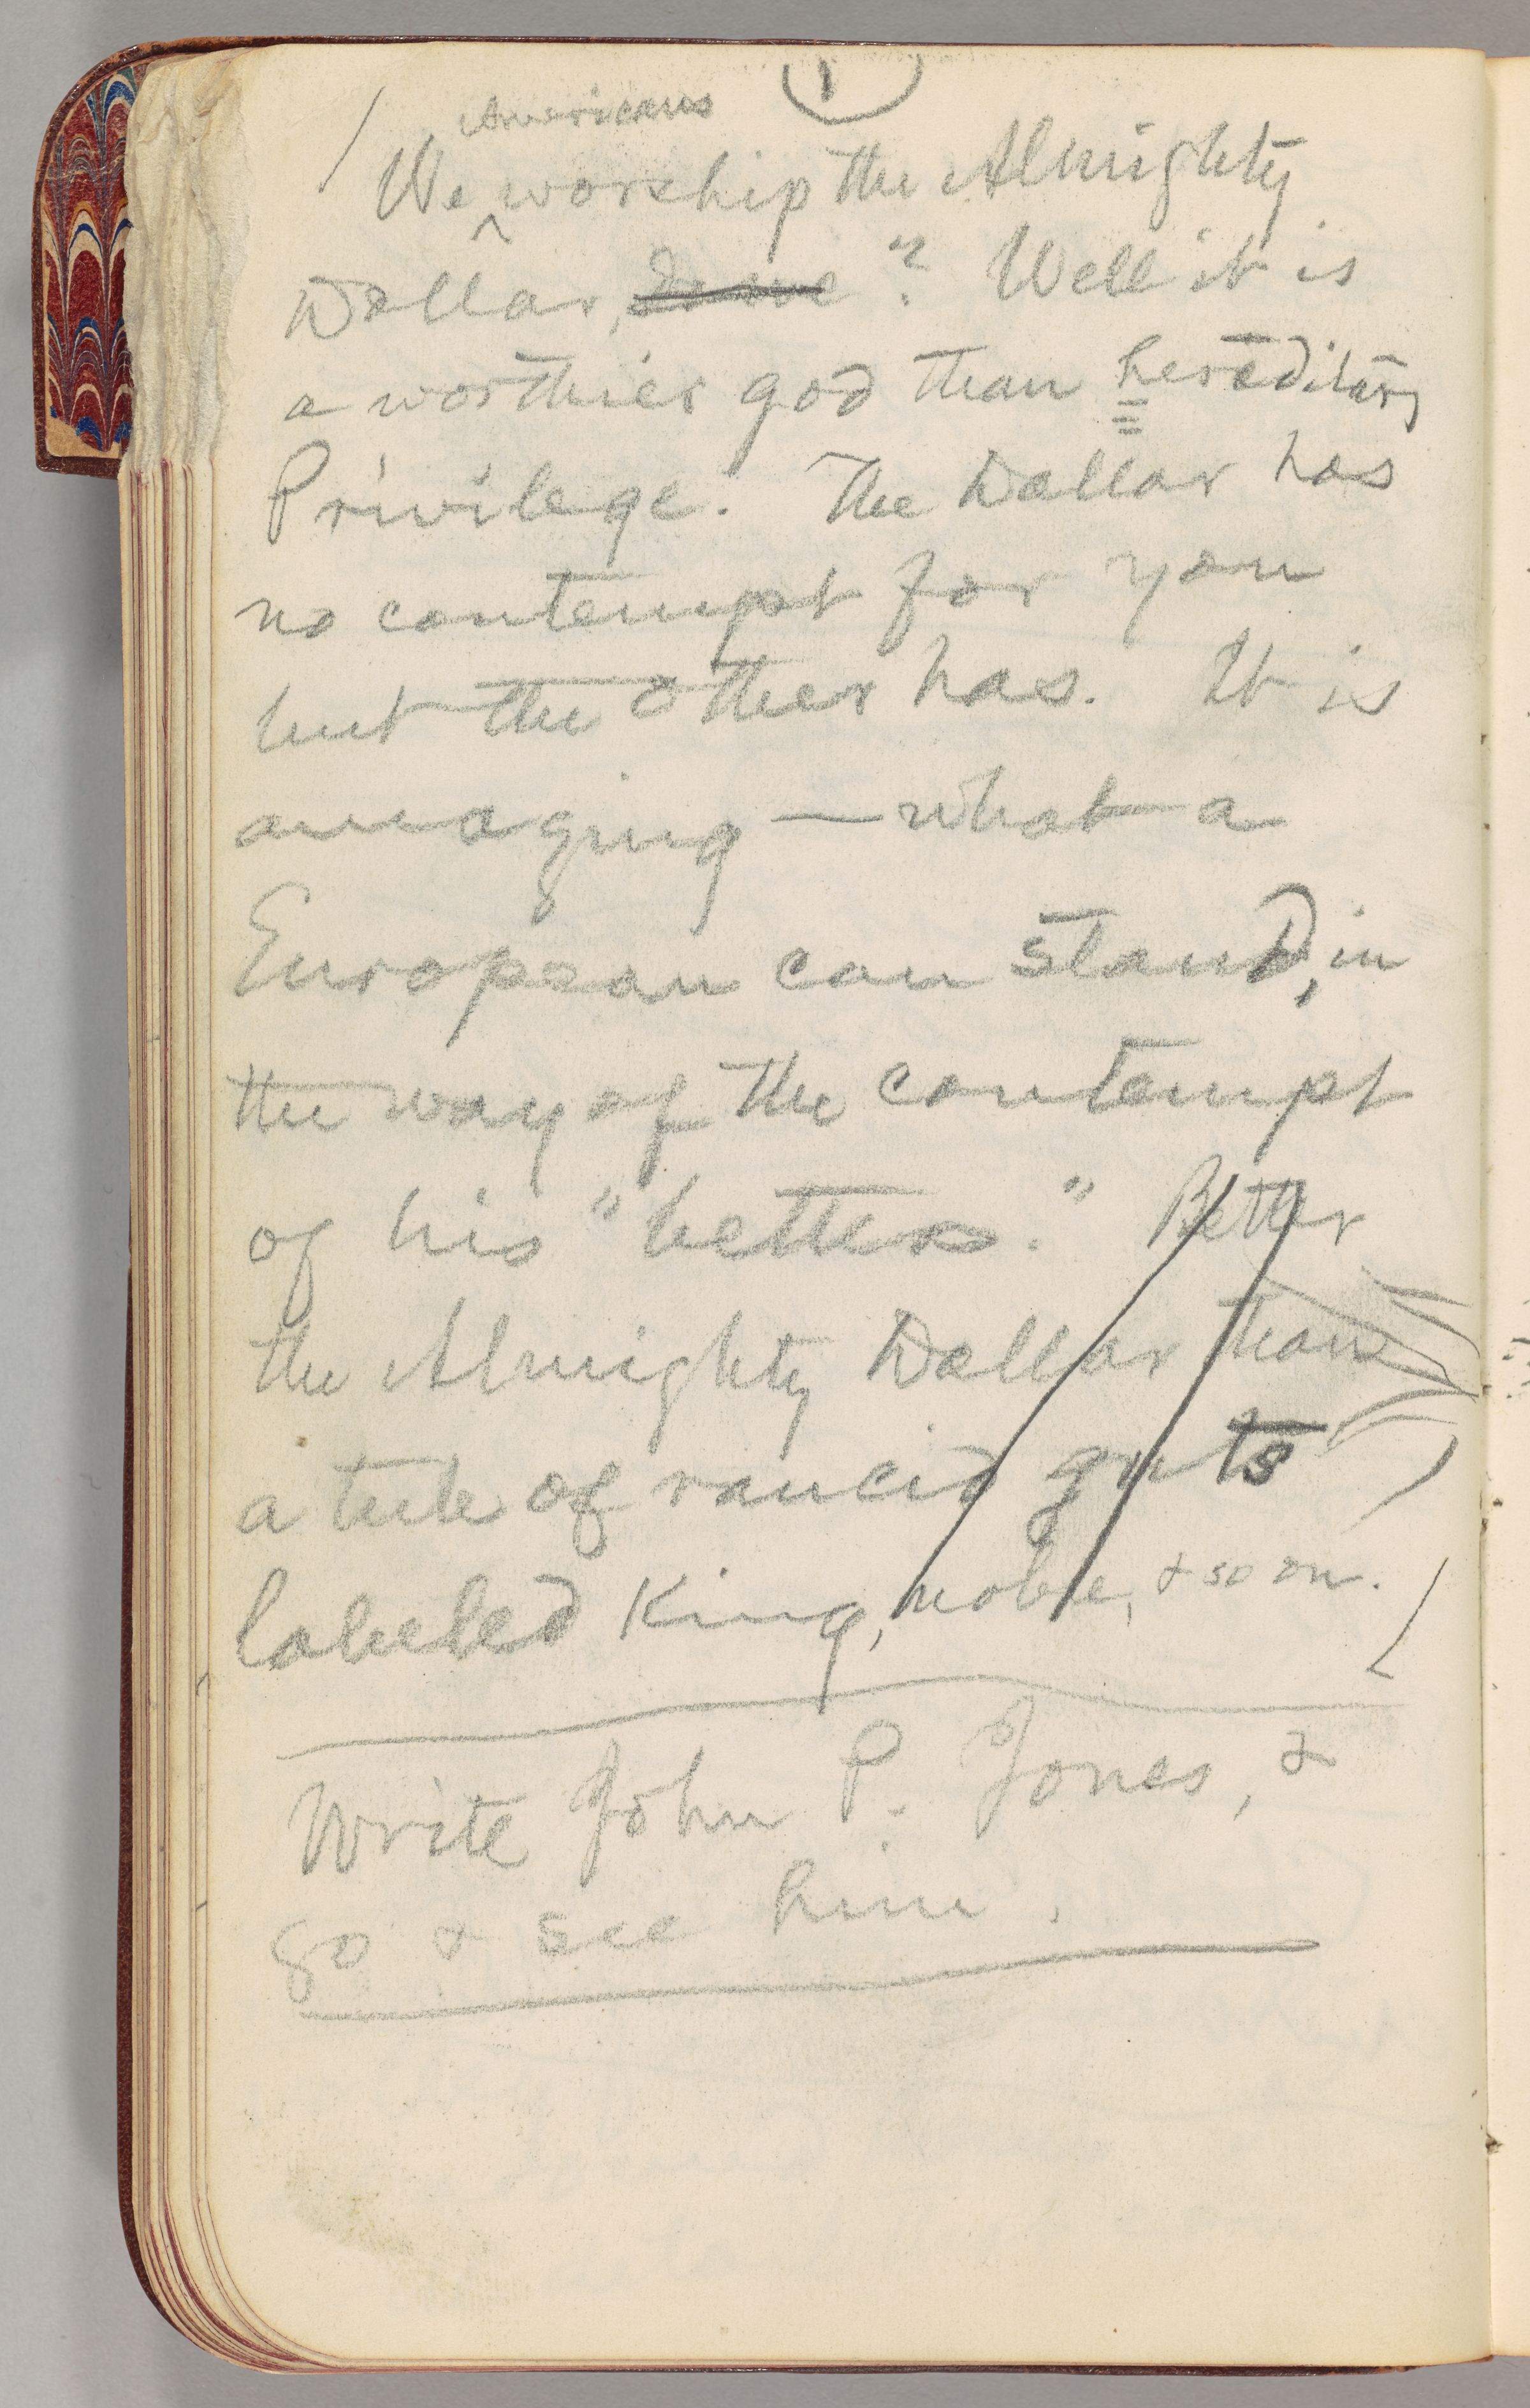 1
Americans
We worship the Almighty
Dollar, do we? Well it is
a worthier god than hereditary
Privilege. The Dollar has
no contempt for you
but the other has. It is
amazing—what a
European can stand, in
the way of the contempt
of his "betters." Better
the Almighty Dollar than
a tub of rancid guts
labeled King, noble, & so on.
Write John P. Jones, &
go & see him.